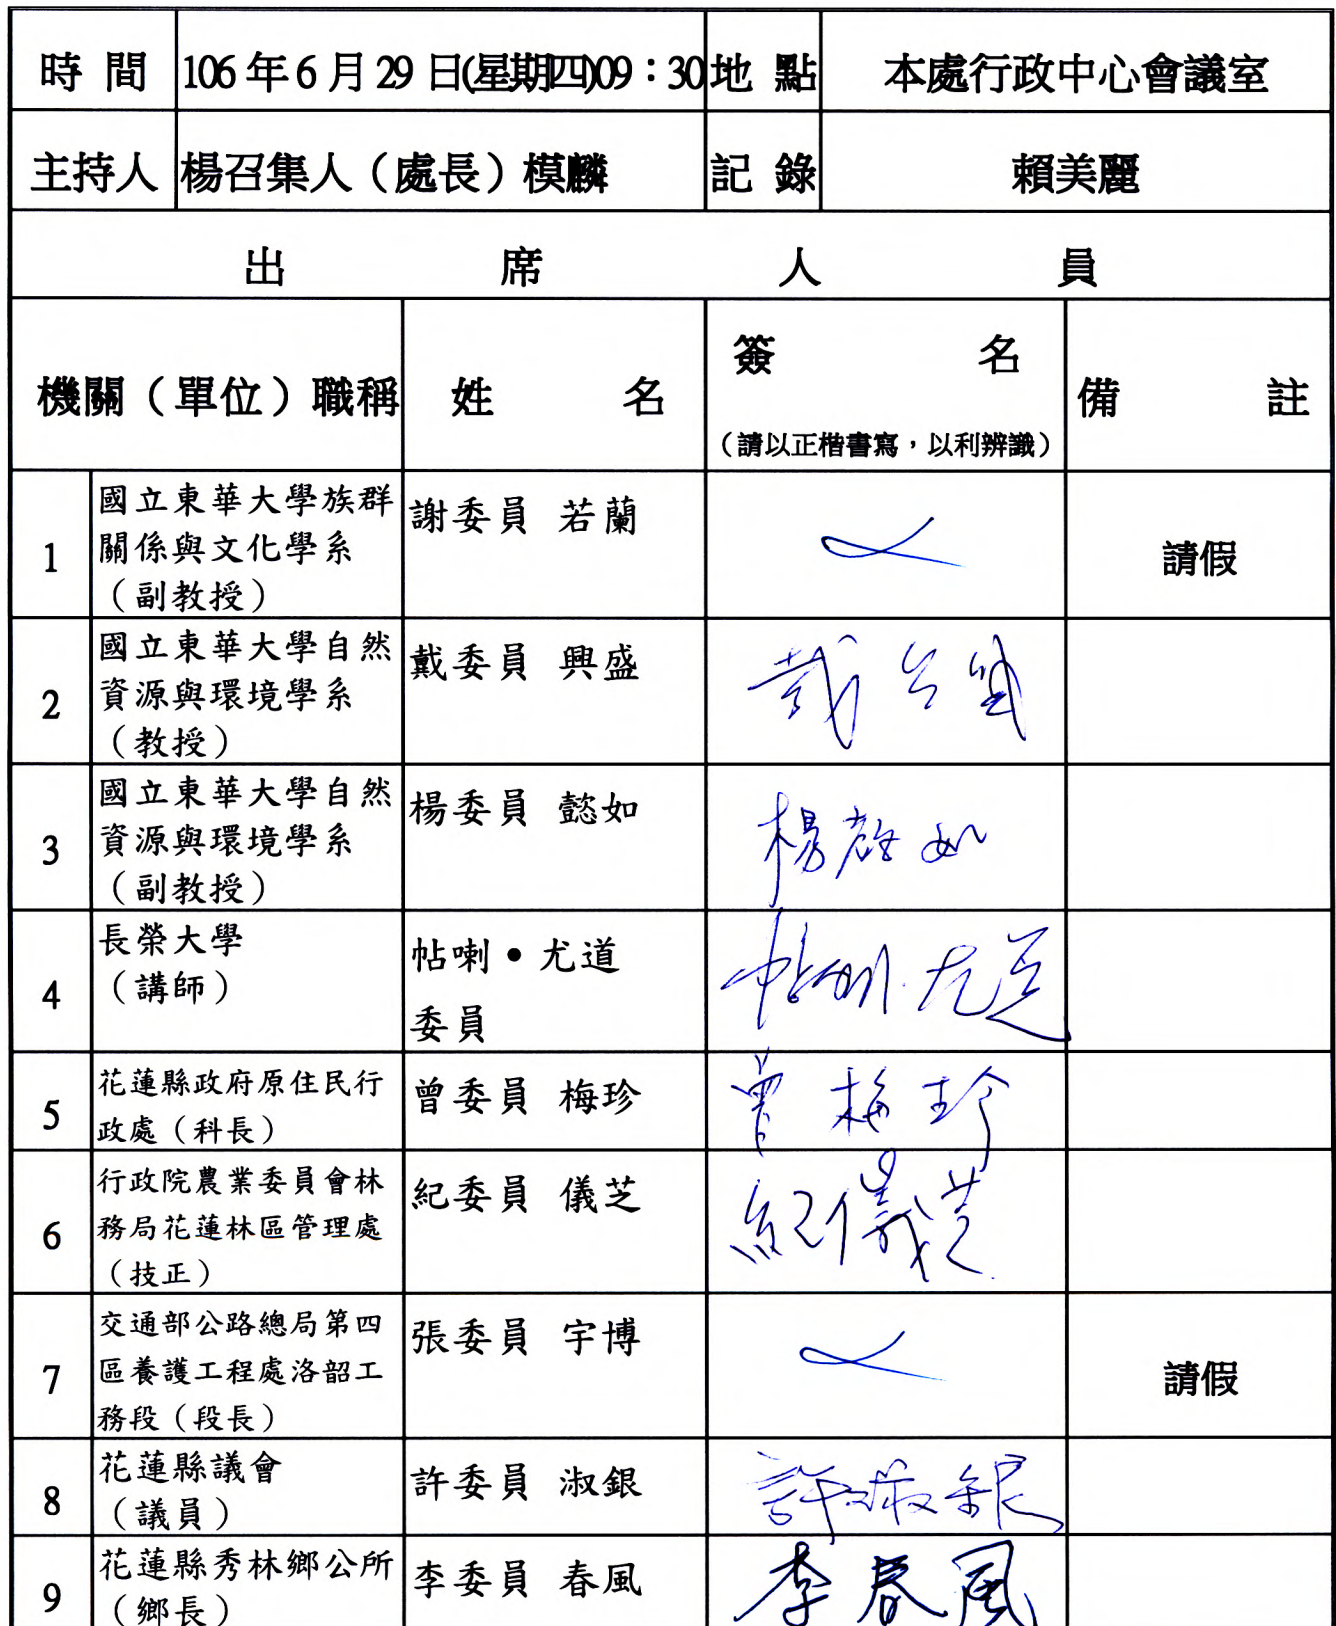 時 間 106年6月29日(星期四)09：30 地 點 本處行政中心會議室
主持人 楊召集人（處長）模麟 記 錄 賴美麗
出 席 人 員
機關（單位）職稱 姓 名 簽 名 備 註
（請以正楷書寫，以利辨識）
1 國立東華大學族群
關係與文化學系
（副教授）
謝委員 若蘭
請假
2 國立東華大學自然
資源與環境學系
（教授）
戴委員 興盛
戴興盛
3 國立東華大學自然
資源與環境學系
（副教授）
楊委員 懿如
楊懿如
4 長榮大學
（講師）
帖喇•尤道
委員
帖喇．尤道
5 花蓮縣政府原住民行
政處（科長）
曾委員 梅珍
曾梅珍
6 行政院農業委員會林
務局花蓮林區管理處
（技正）
紀委員 儀芝
紀儀芝
7 交通部公路總局第四
區養護工程處洛韶工
務段（段長）
張委員 宇博
請假
8 花蓮縣議會
（議員）
許委員 淑銀
許淑銀
9 花蓮縣秀林鄉公所
（鄉長）
李委員 春風
李春風